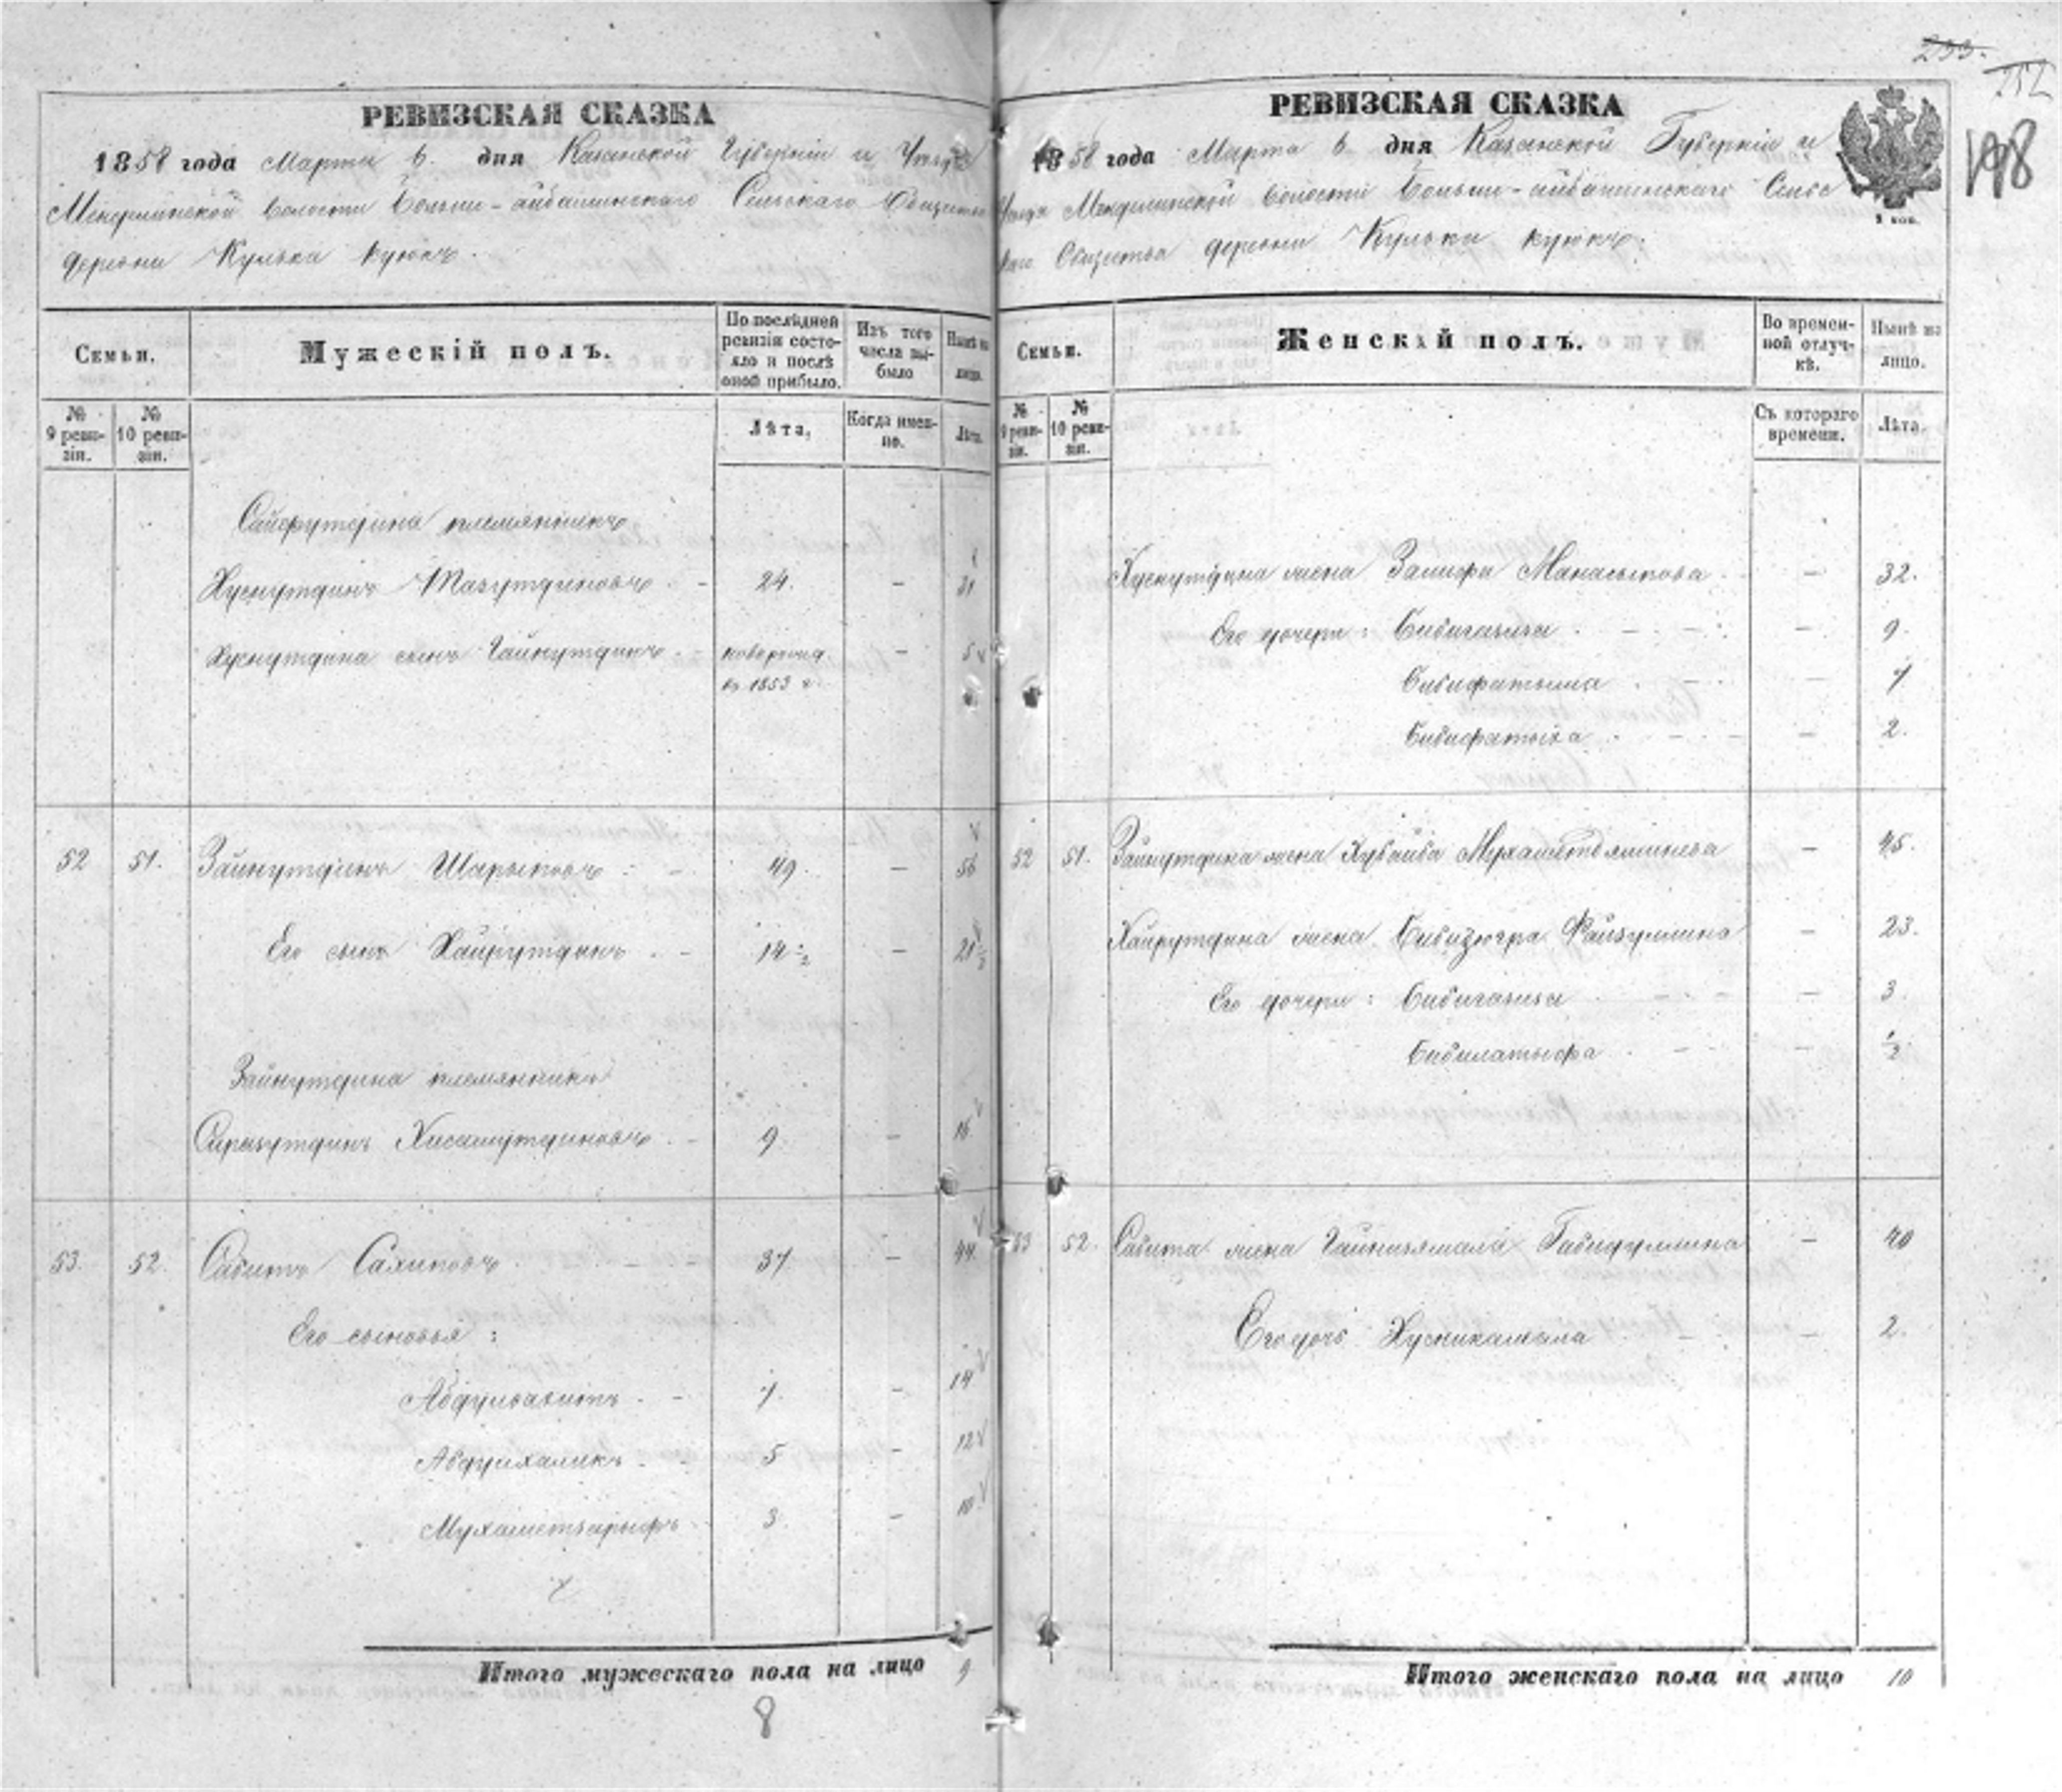 233.
252
198
РЕВИЗСКАЯ СКАЗКА
1858 года Марта 6 дня Казанской Губерніи и Уезда
Менгерлинской волости Больши-айбашинскаго Сельскаго Общества
деревни Кулька куюкъ.
Семьи.
Мужескій полъ.
По послѣдней ревизіи состояло и послѣ оной прибыло.
Изъ того числа выбыло
Нынѣ на лицо.
№ 9 ревизіи.
№ 10 ревизіи.
Лѣта,
Когда именно.
Лѣта.
Сайфутдина племянникъ
Хуснутдинъ Тазутдиновъ - 24. - 31
Хуснутдина сынъ Гайнутдинъ - новорожд. - 5
въ 1853 г.
52 51. Зайнутдинъ Шарыповъ - 49. - 56
Его сынъ Хайрутдинъ - 14 1/2 - 21 1/2
Зайнутдина племянникъ
Сиразутдинъ Хисамутдиновъ - 9. - 16
53. 52. Сабитъ Салиповъ - 37 - 44.
Его сыновья:
Абдулвагитъ - 7. - 14
Абдулхаликъ - 5 - 12
Мухаметзарыфъ - 3. - 10
Итого мужескаго пола на лицо 9
8
РЕВИЗСКАЯ СКАЗКА
1858 года Марта 6 дня Казанской Губерніи и
Уезда Менгерлинской волости Больши-айбашинскаго Сельс
каго Общества деревни Кулька куюкъ.
2 коп.
Семьи.
Женскай полъ.
Во временной отлучкѣ.
Нынѣ на лицо.
№ 9 ревизіи.
№ 10 ревизіи.
Съ котораго времени.
Лѣта.
Хуснутдина жена Залифа Манасыпова - 32.
Его дочери: Бибигазиза - 9.
Бибифатыма - 7
Бибифатыха - 2.
52 51. Зайнутдина жена Хубайба Мухаметдяминева - 45.
Хайрутдина жена Бибизюгра Файзуллина - 23.
Его дочери: Бибигазиза - 3.
Бибилатыфа - 1/2
53 52. Сабита жена Гайнизямала Габидуллина - 40
Его дочь Хусникамала - 2.
Итого женскаго пола на лицо 10